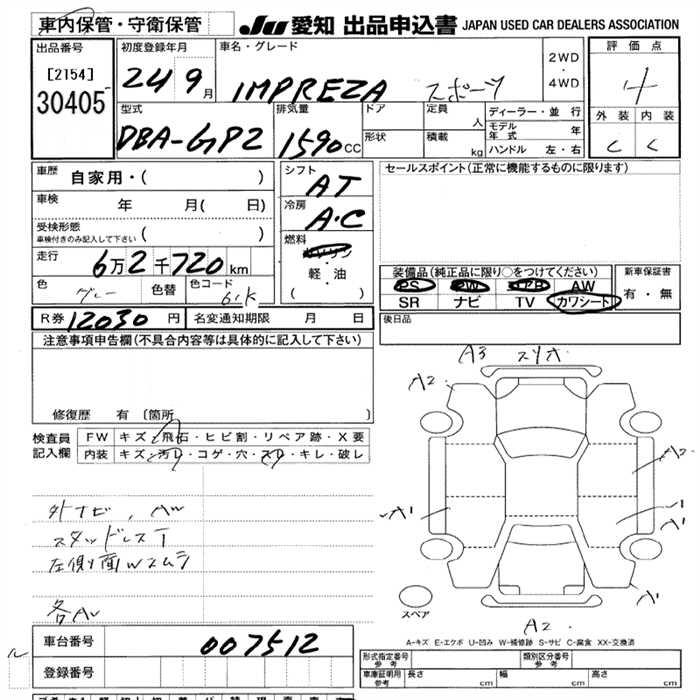 車内保管・守衛保管
JU 愛知 出品申込書 JAPAN USED CAR DEALERS ASSOCIATION
出品番号
[2154]
30405
初度登録年月
24 9月
車名・グレード
IMPREZA スポーツ
2WD
・
4WD
評価点
4
外装 内装
C C
型式
DBA-GP2
排気量
1590cc
ドア
形状
定員
人
積載
kg
ディーラー・並行
モデル年式 年
ハンドル 左・右
車歴
自家用・( )
車検
年 月( 日)
受検形態
車検付きのみ記入して下さい ( )
走行
6万2千720km
色
グレー
色替
色コード
61K
シフト
AT
冷房
A・C
燃料
ガソリン
・
軽・油
( )
セールスポイント(正常に機能するものに限ります)
装備品(純正品に限り○をつけてください)
PS PW エアB AW
SR ナビ TV カワシート
新車保証書
有・無
後日品
R券 12030円
名変通知期限 月 日
注意事項申告欄(不具合内容等は具体的に記入して下さい)
修復歴 有 〔箇所 〕
検査員記入欄
FW キズ・飛石・ヒビ割・リペア跡・X要
内装 キズ・汚レ・コゲ・穴・スレ・キレ・破レ
外ナビ、AW
スタッドレスT
左側面Wスムラ
各AW
A3 スリキ
A2
A2
A1
A1
A1
A1
A2
スペア
A-キズ E-エクボ U-凹み W-補修跡 S-サビ C-腐食 XX-交換済
車台番号
007512
登録番号
ル
形式指定番号
参考
類別区分番号
参考
車庫証明用
参考
長さ cm
幅 cm
高さ cm